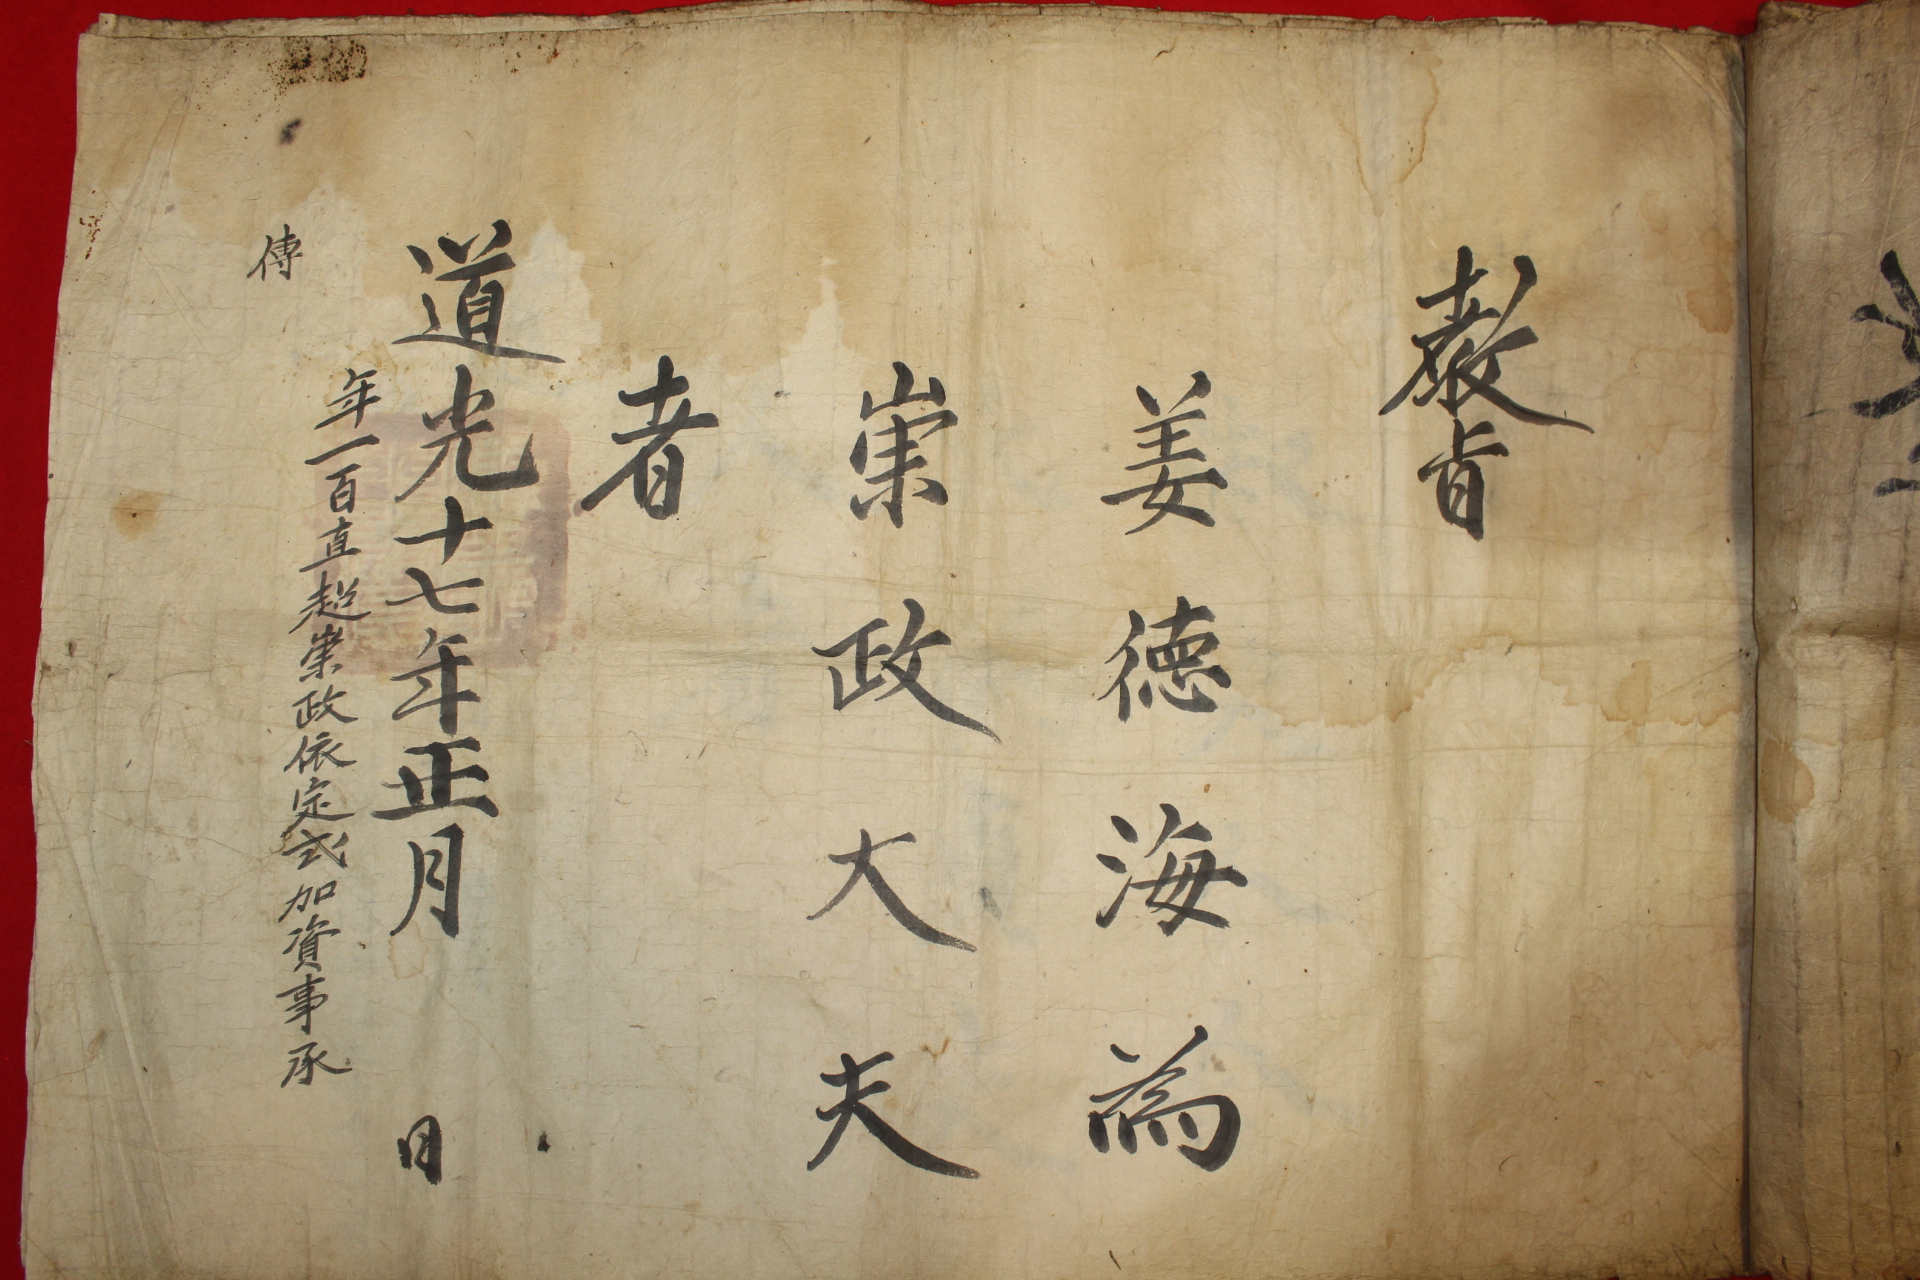 敎旨
姜德海爲
崇政大夫
者
道光十七年正月 日
年一百直超崇政依定式加資事承
傳